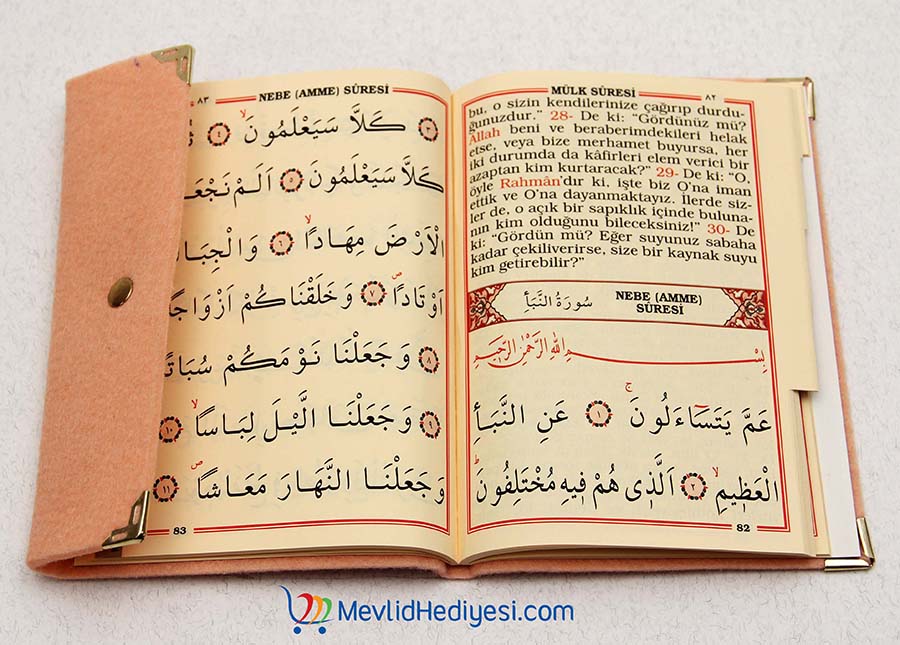 MÜLK SÛRESİ ٨٢
bu, o sizin kendilerinize çağırıp durdu-
ğunuzdur.” 28- De ki: “Gördünüz mü?
Allah beni ve beraberimdekileri helak
etse, veya bize merhamet buyursa, her
iki durumda da kâfirleri elem verici bir
azaptan kim kurtaracak?” 29- De ki: “O,
öyle Rahmân’dır ki, işte biz O’na iman
ettik ve O’na dayanmaktayız. İlerde siz-
ler de, o açık bir sapıklık içinde buluna-
nın kim olduğunu bileceksiniz!” 30- De
ki: “Gördün mü? Eğer suyunuz sabaha
kadar çekiliverirse, size bir kaynak suyu
kim getirebilir?”
سُورَةُ النَّبَأِ NEBE (AMME)
SÛRESİ
بِسْمِ اللهِ الرَّحْمٰنِ الرَّحِيمِ
عَمَّ يَتَسَاءَلُونَ ۚ ١ عَنِ النَّبَأِ
الْعَظِيمِ ۙ ٢ اَلَّذِى هُمْ فِيهِ مُخْتَلِفُونَ ۜ
82
٨٣ NEBE (AMME) SÛRESİ
٣ كَلَّا سَيَعْلَمُونَ ۙ ٤
كَلَّا سَيَعْلَمُونَ ٥ اَلَمْ نَجْعَـ
الْاَرْضَ مِهَادًا ۙ ٦ وَالْجِبَا
اَوْتَادًا ۖ ٧ وَخَلَقْنَاكُمْ اَزْوَاجًا
٨ وَجَعَلْنَا نَوْمَكُمْ سُبَاتًا
٩ وَجَعَلْنَا الَّيْلَ لِبَاسًا ۙ ١٠
وَجَعَلْنَا النَّهَارَ مَعَاشًا ۖ ١١
83
MevlidHediyesi.com